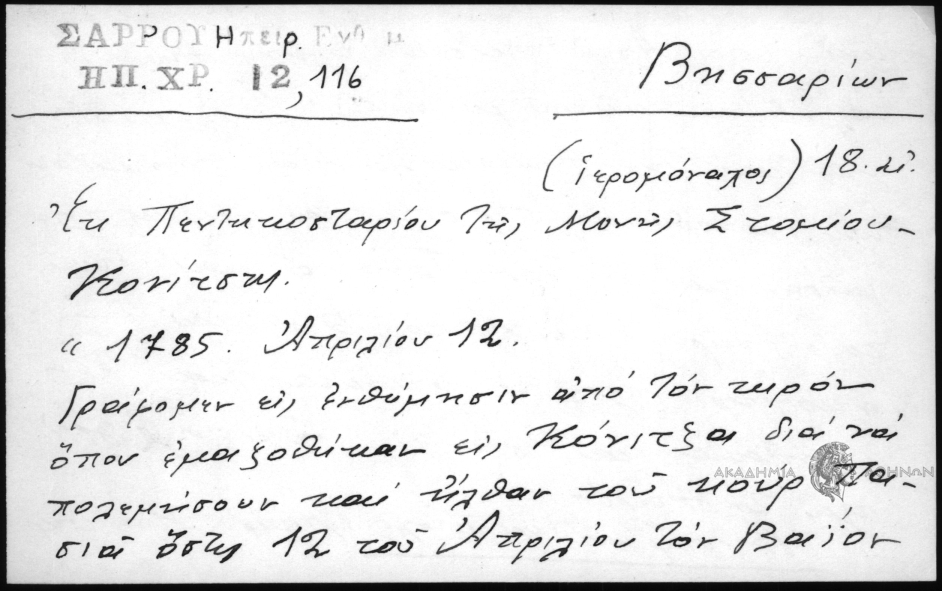 ΣΑΡΡΟΥ Ηπειρ. Ενθ μ
ΗΠ. ΧΡ. 12, 116
Βησσαρίων
(ἱερομόναχος) 18. αἰ.
Ἐκ Πεντηκοσταρίου τῆς Μονῆς Στομίου-
Κονίτσης.
" 1785. Ἀπριλίου 12.
Γράφομεν εἰς ἐνθύμησιν ἀπό τόν καιρόν
ὅπου ἐμαζοθῆκαν εἰς Κόνιτζα διά νά
πολεμήσουν καί ἦλθαν τοῦ κουρ Πα-
σιᾶ ὅστης 12 τοῦ Ἀπριλίου τόν Βαϊον
ΑΚΑΔΗΜΙΑ ΑΘΗΝΩΝ